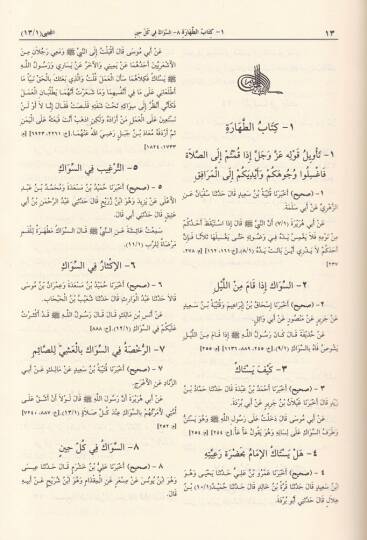 ١٣
١- كتاب الطهارة ٨- السواك في كل حين
المجتبى (١٣/١)
١- كِتَابُ الطَّهَارَةِ
١- تَأْوِيلُ قَوْلِهِ عَزَّ وَجَلَّ إِذَا قُمْتُمْ إِلَى الصَّلَاةِ
فَاغْسِلُوا وُجُوهَكُمْ وَأَيْدِيَكُمْ إِلَى الْمَرَافِقِ
١- (صحيح) أخبرنا قُتَيْبَةُ بْنُ سَعِيدٍ قَالَ حَدَّثَنَا سُفْيَانُ عَنِ
الزُّهْرِيِّ عَنْ أَبِي سَلَمَةَ.
عَنْ أَبِي هُرَيْرَةَ (٧/١) أَنَّ النَّبِيَّ ﷺ قَالَ إِذَا اسْتَيْقَظَ أَحَدُكُمْ
مِنْ نَوْمِهِ فَلَا يَغْمِسْ يَدَهُ فِي وَضُوئِهِ حَتَّى يَغْسِلَهَا ثَلَاثًا فَإِنَّ
أَحَدَكُمْ لَا يَدْرِي أَيْنَ بَاتَتْ يَدُهُ
٢- السِّوَاكُ إِذَا قَامَ مِنَ اللَّيْلِ
٢- (صحيح) أخبرنا إِسْحَاقُ بْنُ إِبْرَاهِيمَ وَقُتَيْبَةُ بْنُ سَعِيدٍ
عَنْ جَرِيرٍ عَنْ مَنْصُورٍ عَنْ أَبِي وَائِلٍ.
عَنْ حُذَيْفَةَ قَالَ كَانَ رَسُولُ اللَّهِ ﷺ إِذَا قَامَ مِنَ اللَّيْلِ
يَشُوصُ فَاهُ بِالسِّوَاكِ
٣- كَيْفَ يَسْتَاكُ
٣- (صحيح) أخبرنا أَحْمَدُ بْنُ عَبْدَةَ قَالَ حَدَّثَنَا حَمَّادُ بْنُ
زَيْدٍ قَالَ أَخْبَرَنَا غَيْلَانُ بْنُ جَرِيرٍ عَنْ أَبِي بُرْدَةَ.
عَنْ أَبِي مُوسَى قَالَ دَخَلْتُ عَلَى رَسُولِ اللَّهِ ﷺ وَهُوَ يَسْتَنُّ
وَطَرَفُ السِّوَاكِ عَلَى لِسَانِهِ وَهُوَ يَقُولُ عَأْ عَأْ
٤- هَلْ يَسْتَاكُ الْإِمَامُ بِحَضْرَةِ رَعِيَّتِهِ
٤- (صحيح) أخبرنا عَمْرُو بْنُ عَلِيٍّ حَدَّثَنَا يَحْيَى وَهُوَ
ابْنُ سَعِيدٍ قَالَ حَدَّثَنَا قُرَّةُ بْنُ خَالِدٍ قَالَ حَدَّثَنَا حُمَيْدُ (١٠/١) بْنُ
هِلَالٍ قَالَ حَدَّثَنِي أَبُو بُرْدَةَ.
عَنْ أَبِي مُوسَى قَالَ أَقْبَلْتُ إِلَى النَّبِيِّ ﷺ وَمَعِي رَجُلَانِ مِنَ
الْأَشْعَرِيِّينَ أَحَدُهُمَا عَنْ يَمِينِي وَالْآخَرُ عَنْ يَسَارِي وَرَسُولُ اللَّهِ
ﷺ يَسْتَاكُ فَكِلَاهُمَا سَأَلَ الْعَمَلَ قُلْتُ وَالَّذِي بَعَثَكَ بِالْحَقِّ نَبِيًّا مَا
أَطْلَعَانِي عَلَى مَا فِي أَنْفُسِهِمَا وَمَا شَعَرْتُ أَنَّهُمَا يَطْلُبَانِ الْعَمَلَ
فَكَأَنِّي أَنْظُرُ إِلَى سِوَاكِهِ تَحْتَ شَفَتِهِ قَلَصَتْ فَقَالَ إِنَّا لَا أَوْ لَنْ
نَسْتَعِينَ عَلَى الْعَمَلِ مَنْ أَرَادَهُ وَلَكِنِ اذْهَبْ أَنْتَ فَبَعَثَهُ عَلَى الْيَمَنِ
ثُمَّ أَرْدَفَهُ مُعَاذُ بْنُ جَبَلٍ رَضِيَ اللَّهُ عَنْهُمَا.
٥- التَّرْغِيبُ فِي السِّوَاكِ
٥- (صحيح) أخبرنا حُمَيْدُ بْنُ مَسْعَدَةَ وَمُحَمَّدُ بْنُ عَبْدِ
الْأَعْلَى عَنْ يَزِيدَ وَهُوَ ابْنُ زُرَيْعٍ قَالَ حَدَّثَنِي عَبْدُ الرَّحْمَنِ بْنُ أَبِي
عَتِيقٍ قَالَ حَدَّثَنِي أَبِي قَالَ
سَمِعْتُ عَائِشَةَ عَنِ النَّبِيِّ ﷺ قَالَ السِّوَاكُ مَطْهَرَةٌ لِلْفَمِ
مَرْضَاةٌ لِلرَّبِّ (١١/١).
٦- الْإِكْثَارُ فِي السِّوَاكِ
٦- (صحيح) أخبرنا حُمَيْدُ بْنُ مَسْعَدَةَ وَعِمْرَانُ بْنُ مُوسَى
قَالَا حَدَّثَنَا عَبْدُ الْوَارِثِ قَالَ حَدَّثَنَا شُعَيْبُ بْنُ الْحَبْحَابِ.
عَنْ أَنَسِ بْنِ مَالِكٍ قَالَ قَالَ رَسُولُ اللَّهِ ﷺ قَدْ أَكْثَرْتُ
عَلَيْكُمْ فِي السِّوَاكِ (١٢/١).[خ: ٨٨٨]
٧- الرُّخْصَةُ فِي السِّوَاكِ بِالْعَشِيِّ لِلصَّائِمِ
٧- (صحيح) أخبرنا قُتَيْبَةُ بْنُ سَعِيدٍ عَنْ مَالِكٍ عَنْ أَبِي
الزِّنَادِ عَنِ الْأَعْرَجِ.
عَنْ أَبِي هُرَيْرَةَ أَنَّ رَسُولَ اللَّهِ ﷺ قَالَ لَوْلَا أَنْ أَشُقَّ عَلَى
أُمَّتِي لَأَمَرْتُهُمْ بِالسِّوَاكِ عِنْدَ كُلِّ صَلَاةٍ (١٣/١).[خ: ٨٨٧، ٧٢٤٠]
[م: ٢٥٢]
٨- السِّوَاكُ فِي كُلِّ حِينٍ
٨- (صحيح) أخبرنا عَلِيُّ بْنُ خَشْرَمٍ قَالَ حَدَّثَنَا عِيسَى
وَهُوَ ابْنُ يُونُسَ عَنْ مِسْعَرٍ عَنِ الْمِقْدَامِ وَهُوَ ابْنُ شُرَيْحٍ عَنْ أَبِيهِ
قَالَ